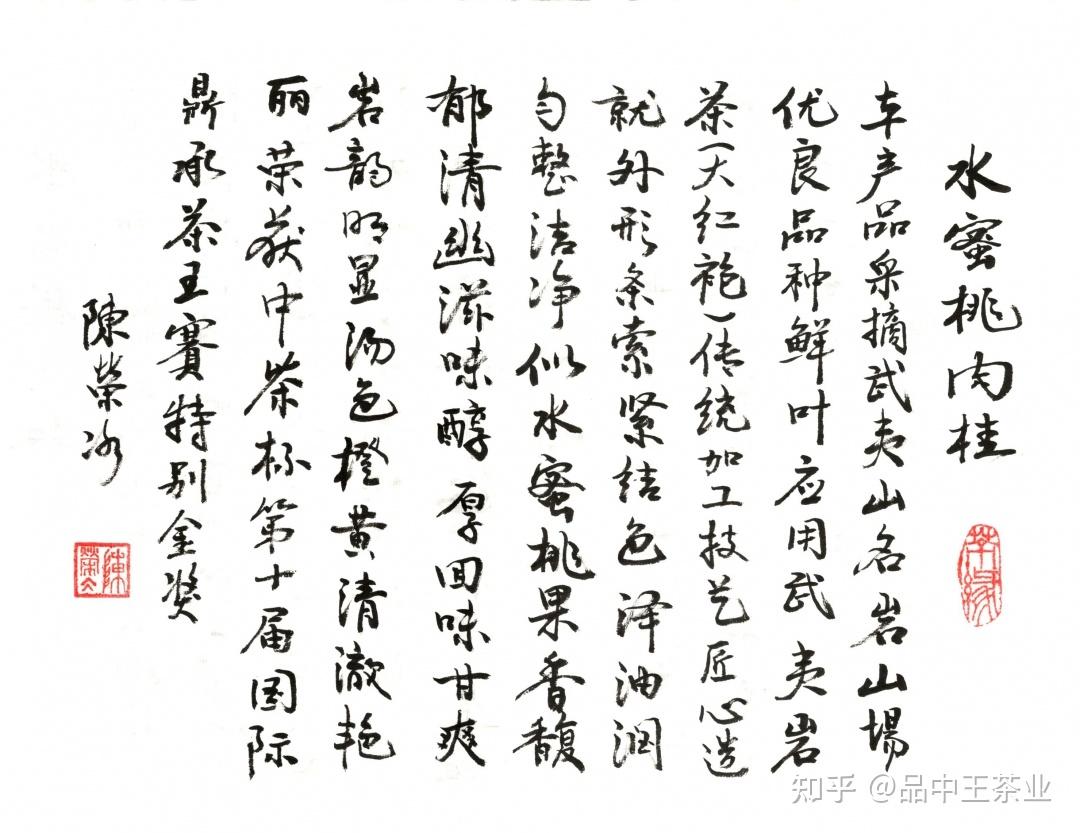 水蜜桃肉桂
本产品采摘武夷山名岩山場
优良品种鲜叶应用武夷岩
茶(大红袍)传统加工技艺匠心造
就外形条索紧结色泽油润
匀整洁净似水蜜桃果香馥
郁清幽滋味醇厚回味甘爽
岩韵明显汤色橙黄清澈艳
丽荣获中茶杯第十届国际
鼎承茶王賽特别金奖
陳榮冰
知乎 @品中王茶业